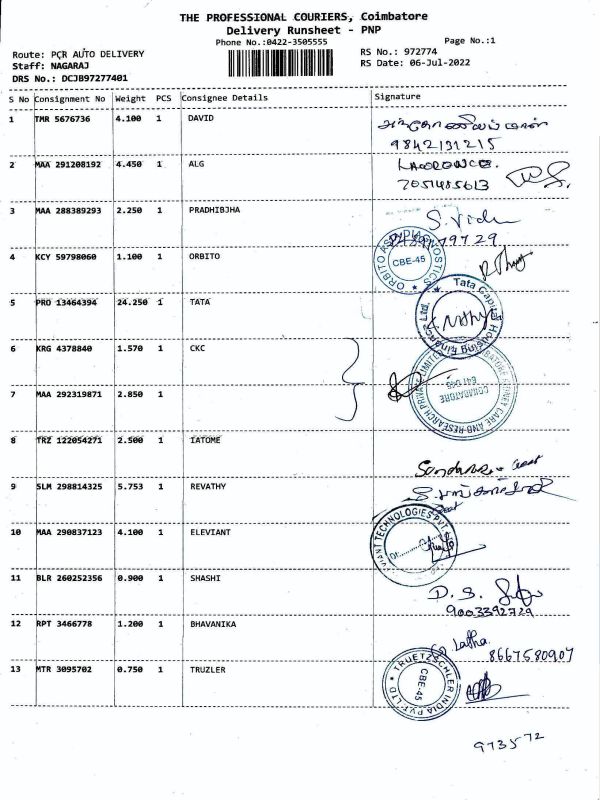 THE PROFESSIONAL COURIERS, Coimbatore
Delivery Runsheet - PNP
Phone No.:0422-3505555
Page No.:1
Route: PCR AUTO DELIVERY
RS No.: 972774
Staff: NAGARAJ
RS Date: 06-Jul-2022
DRS No.: DCJB97277401
S No Consignment No Weight PCS Consignee Details Signature
1 TMR 5676736 4.100 1 DAVID
9842131215
2 MAA 291208192 4.450 1 ALG
7051485613
3 MAA 288389293 2.250 1 PRADHIBJHA
S. Vidu
4 KCY 59798060 1.100 1 ORBITO
ORBITO ASIA DIAGNOSTICS
CBE-45
5 PRO 13464394 24.250 1 TATA
Tata Capital Housing Finance Ltd.
6 KRG 4378840 1.570 1 CKC
7 MAA 292319871 2.850 1
COIMBATORE KIDNEY CARE AND RESEARCH PRIVATE LIMITED
COIMBATORE
641 045
8 TRZ 122054271 2.500 1 IATOME
9 SLM 298814325 5.753 1 REVATHY
10 MAA 290837123 4.100 1 ELEVIANT
TECHNOLOGIES PVT.
11 BLR 260252356 0.900 1 SHASHI
D. S.
9003392729
12 RPT 3466778 1.200 1 BHAVANIKA
Latha
8667580907
13 MTR 3095702 0.750 1 TRUZLER
TRUETZSCHLER INDIA PVT LTD
CBE-45
973572